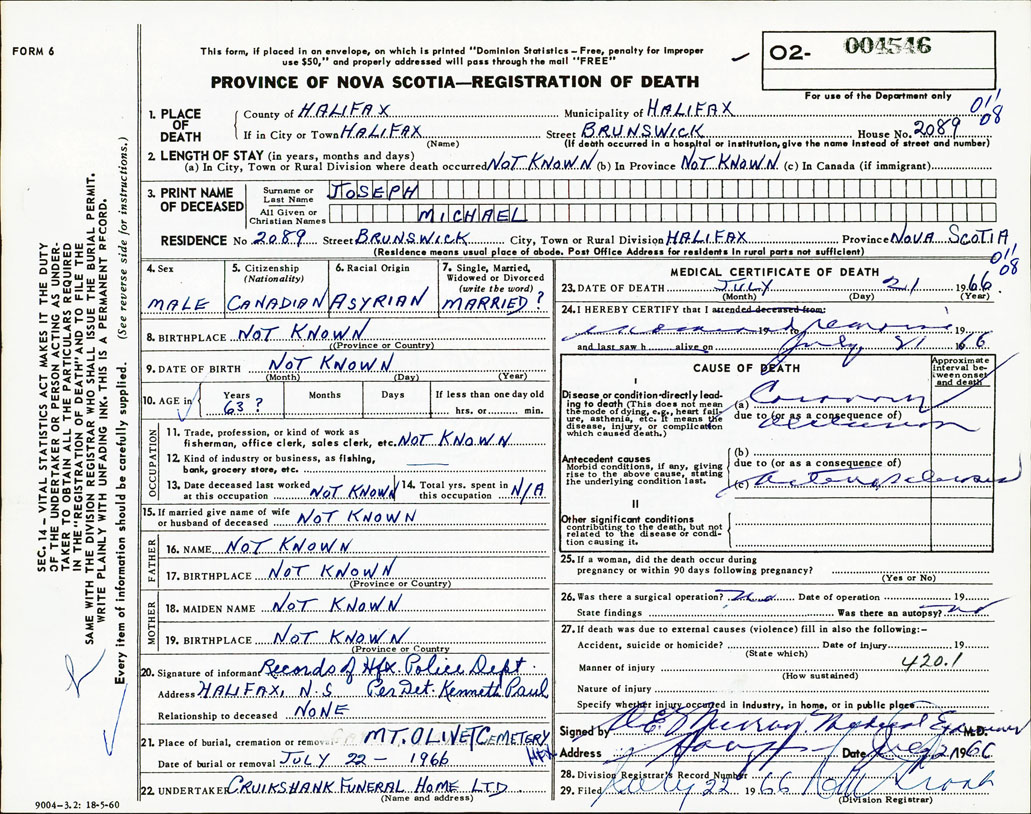 FORM 6
This form, if placed in an envelope, on which is printed "Dominion Statistics – Free, penalty for improper
use $50," and properly addressed will pass through the mail "FREE"
PROVINCE OF NOVA SCOTIA—REGISTRATION OF DEATH
O2- 004546
For use of the Department only
011
08
1. PLACE OF DEATH
County of HALIFAX Municipality of HALIFAX
If in City or Town HALIFAX Street BRUNSWICK House No. 2089
(Name) (If death occurred in a hospital or institution, give the name instead of street and number)
2. LENGTH OF STAY (in years, months and days)
(a) In City, Town or Rural Division where death occurred NOT KNOWN (b) In Province NOT KNOWN (c) In Canada (if immigrant)
3. PRINT NAME OF DECEASED
Surname or Last Name JOSEPH
All Given or Christian Names MICHAEL
RESIDENCE No 2089 Street BRUNSWICK City, Town or Rural Division HALIFAX Province NOVA SCOTIA
(Residence means usual place of abode. Post Office Address for residents in rural parts not sufficient)
011
08
4. Sex MALE
5. Citizenship (Nationality) CANADIAN
6. Racial Origin ASYRIAN
7. Single, Married, Widowed or Divorced (write the word) MARRIED ?
8. BIRTHPLACE NOT KNOWN
(Province or Country)
9. DATE OF BIRTH NOT KNOWN
(Month) (Day) (Year)
10. AGE in Years 63 ? Months Days If less than one day old hrs. or min.
OCCUPATION
11. Trade, profession, or kind of work as
fisherman, office clerk, sales clerk, etc. NOT KNOWN
12. Kind of industry or business, as fishing,
bank, grocery store, etc.
13. Date deceased last worked at this occupation NOT KNOWN 14. Total yrs. spent in this occupation N/A
15. If married give name of wife
or husband of deceased NOT KNOWN
FATHER
16. NAME NOT KNOWN
17. BIRTHPLACE NOT KNOWN
(Province or Country)
MOTHER
18. MAIDEN NAME NOT KNOWN
19. BIRTHPLACE NOT KNOWN
(Province or Country)
20. Signature of informant Records of Hfx. Police Dept.
Address HALIFAX, N.S Per Det. Kenneth Paul
Relationship to deceased NONE
21. Place of burial, cremation or removal MT. OLIVET CEMETERY
HFX
Date of burial or removal JULY 22 – 1966
22. UNDERTAKER CRUIKSHANK FUNERAL HOME LTD.
(Name and address)
MEDICAL CERTIFICATE OF DEATH
23. DATE OF DEATH JULY 21 1966
(Month) (Day) (Year)
24. I HEREBY CERTIFY that I attended deceased from:
19 19
and last saw h alive on July 21 1966
CAUSE OF DEATH
Approximate interval between onset and death
I
Disease or condition directly leading to death (This does not mean the mode of dying, e.g., heart failure, asthenia, etc. It means the disease, injury, or complication which caused death.)
(a) Coronary
due to (or as a consequence of)
Occlusion
Antecedent causes
Morbid conditions, if any, giving rise to the above cause, stating the underlying condition last.
(b)
due to (or as a consequence of)
(c) Arteriosclerosis
II
Other significant conditions
contributing to the death, but not related to the disease or condition causing it.
25. If a woman, did the death occur during
pregnancy or within 90 days following pregnancy?
(Yes or No)
26. Was there a surgical operation? Date of operation 19
State findings Was there an autopsy? no
27. If death was due to external causes (violence) fill in also the following:–
Accident, suicide or homicide? Date of injury 19
(State which)
420.1
Manner of injury
(How sustained)
Nature of injury
Specify whether injury occurred in industry, in home, or in public place
Signed by Murray Medical Examiner M.D.
Address Date July 22 1966
28. Division Registrar's Record Number
29. Filed July 22 1966
(Division Registrar)
9004-3.2: 18-5-60
SEC. 14 – VITAL STATISTICS ACT MAKES IT THE DUTY
OF THE UNDERTAKER OR PERSON ACTING AS UNDER-
TAKER TO OBTAIN ALL THE PARTICULARS REQUIRED
IN THE "REGISTRATION OF DEATH" AND TO FILE THE
SAME WITH THE DIVISION REGISTRAR WHO SHALL ISSUE THE BURIAL PERMIT.
WRITE PLAINLY WITH UNFADING INK. THIS IS A PERMANENT RECORD.
Every item of information should be carefully supplied. (See reverse side for instructions.)